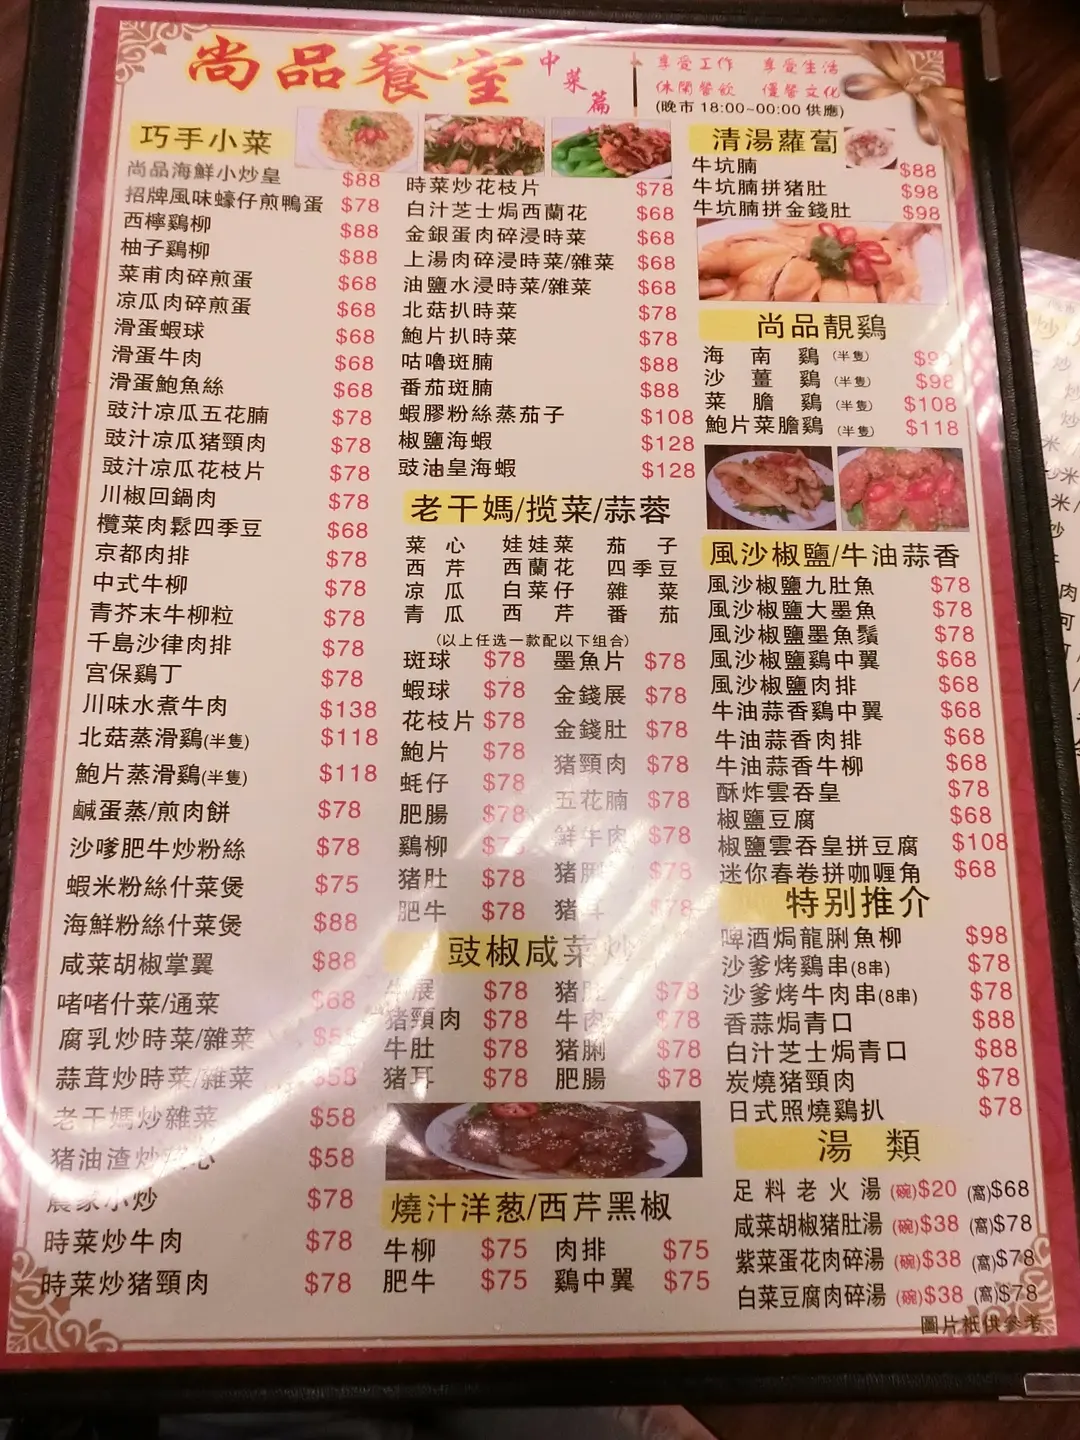 尚品餐室
中菜篇
享受工作 享受生活
休閑餐飲 僅餐文化
(晚市 18:00~00:00 供應)
巧手小菜
尚品海鮮小炒皇 $88
招牌風味蠔仔煎鴨蛋 $78
西檸鷄柳 $88
柚子鷄柳 $88
菜甫肉碎煎蛋 $68
凉瓜肉碎煎蛋 $68
滑蛋蝦球 $68
滑蛋牛肉 $68
滑蛋鮑魚絲 $68
豉汁凉瓜五花腩 $78
豉汁凉瓜猪頸肉 $78
豉汁凉瓜花枝片 $78
川椒回鍋肉 $78
欖菜肉鬆四季豆 $68
京都肉排 $78
中式牛柳 $78
青芥末牛柳粒 $78
千島沙律肉排 $78
宫保鷄丁 $78
川味水煮牛肉 $138
北菇蒸滑鷄(半隻) $118
鮑片蒸滑鷄(半隻) $118
鹹蛋蒸/煎肉餅 $78
沙嗲肥牛炒粉絲 $78
蝦米粉絲什菜煲 $75
海鮮粉絲什菜煲 $88
咸菜胡椒掌翼 $88
啫啫什菜/通菜 $68
腐乳炒時菜/雜菜
蒜茸炒時菜/雜菜 $58
老干媽炒雜菜 $58
猪油渣炒 心 $58
農家小炒 $78
時菜炒牛肉 $78
時菜炒猪頸肉 $78
時菜炒花枝片 $78
白汁芝士焗西蘭花 $68
金銀蛋肉碎浸時菜 $68
上湯肉碎浸時菜/雜菜 $68
油鹽水浸時菜/雜菜 $68
北菇扒時菜 $78
鮑片扒時菜 $78
咕嚕斑腩 $88
番茄斑腩 $88
蝦膠粉絲蒸茄子 $108
椒鹽海蝦 $128
豉油皇海蝦 $128
老干媽/揽菜/蒜蓉
菜心 娃娃菜 茄子
西芹 西蘭花 四季豆
凉瓜 白菜仔 雜菜
青瓜 西芹 番茄
(以上任选一款配以下组合)
斑球 $78 墨魚片 $78
蝦球 $78 金錢展 $78
花枝片 $78 金錢肚 $78
鮑片 $78 猪頸肉 $78
蚝仔 $78 五花腩 $78
肥腸 $78 鮮牛肉 $78
鷄柳 猪脷
猪肚 $78 猪耳 $78
肥牛 $78
豉椒咸菜炒
牛展 $78 猪肚 $78
猪頸肉 $78 牛肉 $78
牛肚 $78 猪脷 $78
猪耳 $78 肥腸 $78
燒汁洋葱/西芹黑椒
牛柳 $75 肉排 $75
肥牛 $75 鷄中翼 $75
清湯蘿蔔
牛坑腩 $88
牛坑腩拼猪肚 $98
牛坑腩拼金錢肚 $98
尚品靚鷄
海南鷄(半隻)
沙薑鷄(半隻) $98
菜膽鷄(半隻) $108
鮑片菜膽鷄(半隻) $118
風沙椒鹽/牛油蒜香
風沙椒鹽九肚魚 $78
風沙椒鹽大墨魚 $78
風沙椒鹽墨魚鬚 $78
風沙椒鹽鷄中翼 $68
風沙椒鹽肉排 $68
牛油蒜香鷄中翼 $68
牛油蒜香肉排 $68
牛油蒜香牛柳 $68
酥炸雲吞皇 $78
椒鹽豆腐 $68
椒鹽雲吞皇拼豆腐 $108
迷你春卷拼咖喱角 $68
特别推介
啤酒焗龍脷魚柳 $98
沙爹烤鷄串(8串) $78
沙爹烤牛肉串(8串) $78
香蒜焗青口 $88
白汁芝士焗青口 $88
炭燒猪頸肉 $78
日式照燒鷄扒 $78
湯類
足料老火湯 (碗)$20 (窩)$68
咸菜胡椒猪肚湯 (碗)$38 (窩)$78
紫菜蛋花肉碎湯 (碗)$38 (窩)$78
白菜豆腐肉碎湯 (碗)$38 (窩)$78
圖片衹供參考